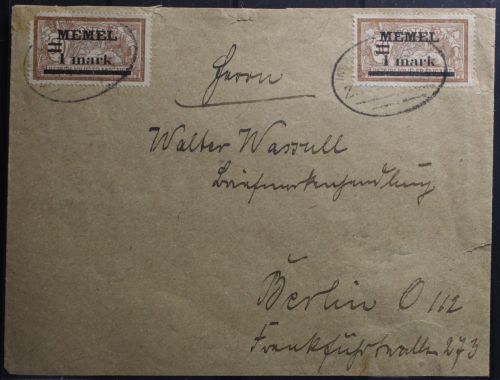 MEMEL
1 mark
MEMEL
1 mark
Herrn
Walter Wassull
Briefmarkenhandlung
Berlin O 112
Frankfurtwalle 273